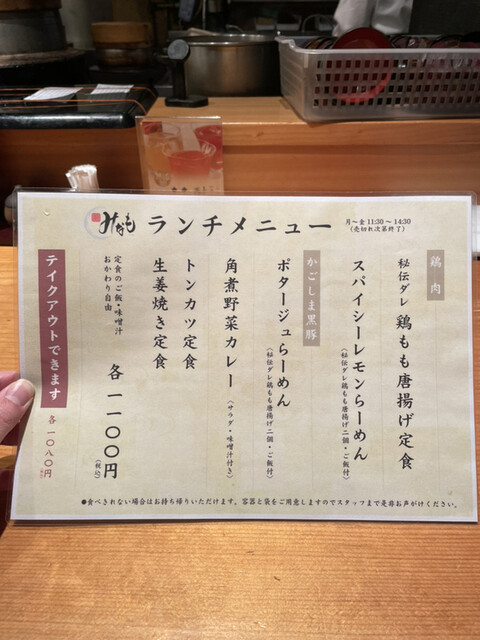 みなも
ランチメニュー
月～金 11:30～14:30
(売切れ次第終了)
鶏肉
秘伝ダレ 鶏もも唐揚げ定食
スパイシーレモンらーめん
(秘伝ダレ鶏もも唐揚げ二個・ご飯付)
かごしま黒豚
ポタージュらーめん
(秘伝ダレ鶏もも唐揚げ二個・ご飯付)
角煮野菜カレー (サラダ・味噌汁付き)
トンカツ定食
生姜焼き定食
定食のご飯・味噌汁
おかわり自由
各 一一〇〇円 (税込)
テイクアウトできます
各 一〇八〇円
●食べきれない場合はお持ち帰りいただけます。容器と袋をご用意しますのでスタッフまで是非お声がけください。